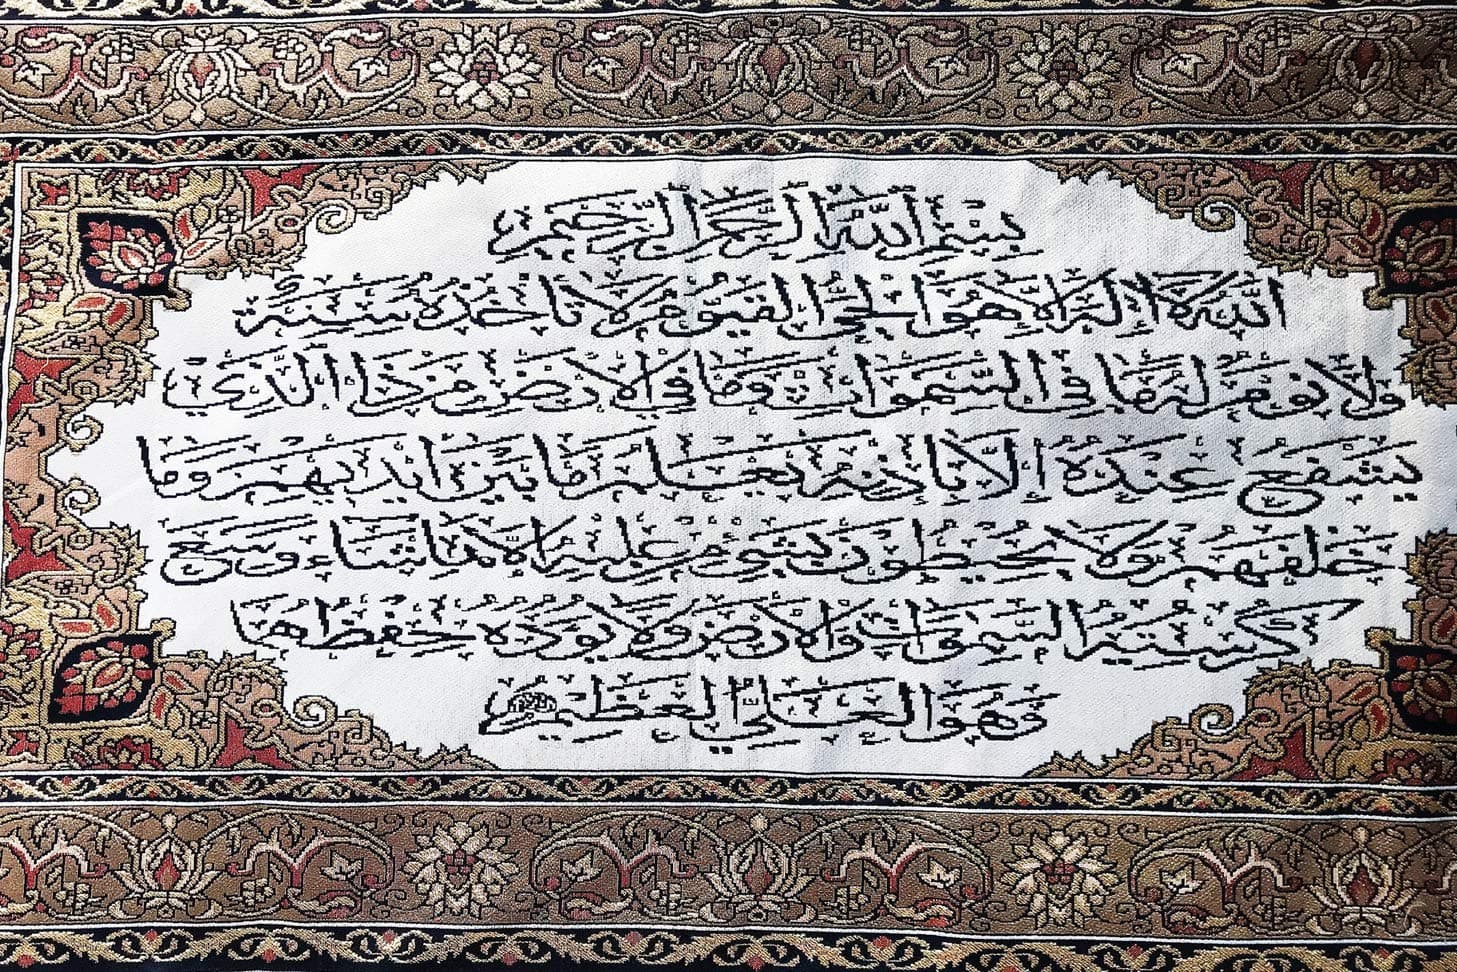 بِسْمِ اللَّهِ الرَّحْمَٰنِ الرَّحِيمِ
اللَّهُ لَا إِلَٰهَ إِلَّا هُوَ الْحَيُّ الْقَيُّومُ لَا تَأْخُذُهُ سِنَةٌ
وَلَا نَوْمٌ لَهُ مَا فِي السَّمَوَاتِ وَمَا فِي الْأَرْضِ مَنْ ذَا الَّذِي
يَشْفَعُ عِنْدَهُ إِلَّا بِإِذْنِهِ يَعْلَمُ مَا بَيْنَ أَيْدِيهِمْ وَمَا
خَلْفَهُمْ وَلَا يُحِيطُونَ بِشَيْءٍ مِنْ عِلْمِهِ إِلَّا بِمَا شَاءَ وَسِعَ
كُرْسِيُّهُ السَّمَوَاتِ وَالْأَرْضَ وَلَا يَئُودُهُ حِفْظُهُمَا
وَهُوَ الْعَلِيُّ الْعَظِيمُ